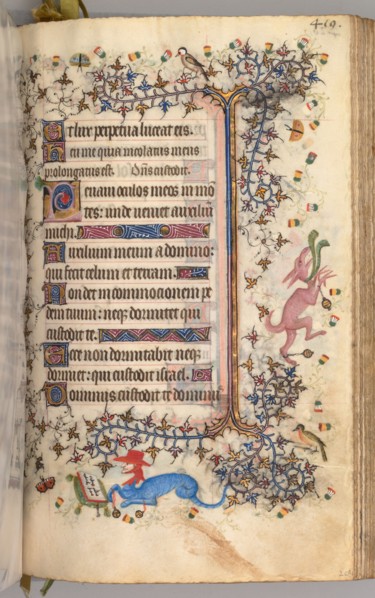 419.
Et lux perpetua luceat eis.
Heu me quia incolatus meus
prolongatus est. Dñs custodit.
Leuaui oculos meos in mō
tes: unde ueniet auxiliū
michi.
Auxilium meum a domino:
qui fecit celum et terram.
Non det in commocionem pe
dem tuum: neq; dormitet qui
custodit te.
Ecce non dormitabit neq;
dormiet: qui custodit israel.
Dominus custodit te dominu